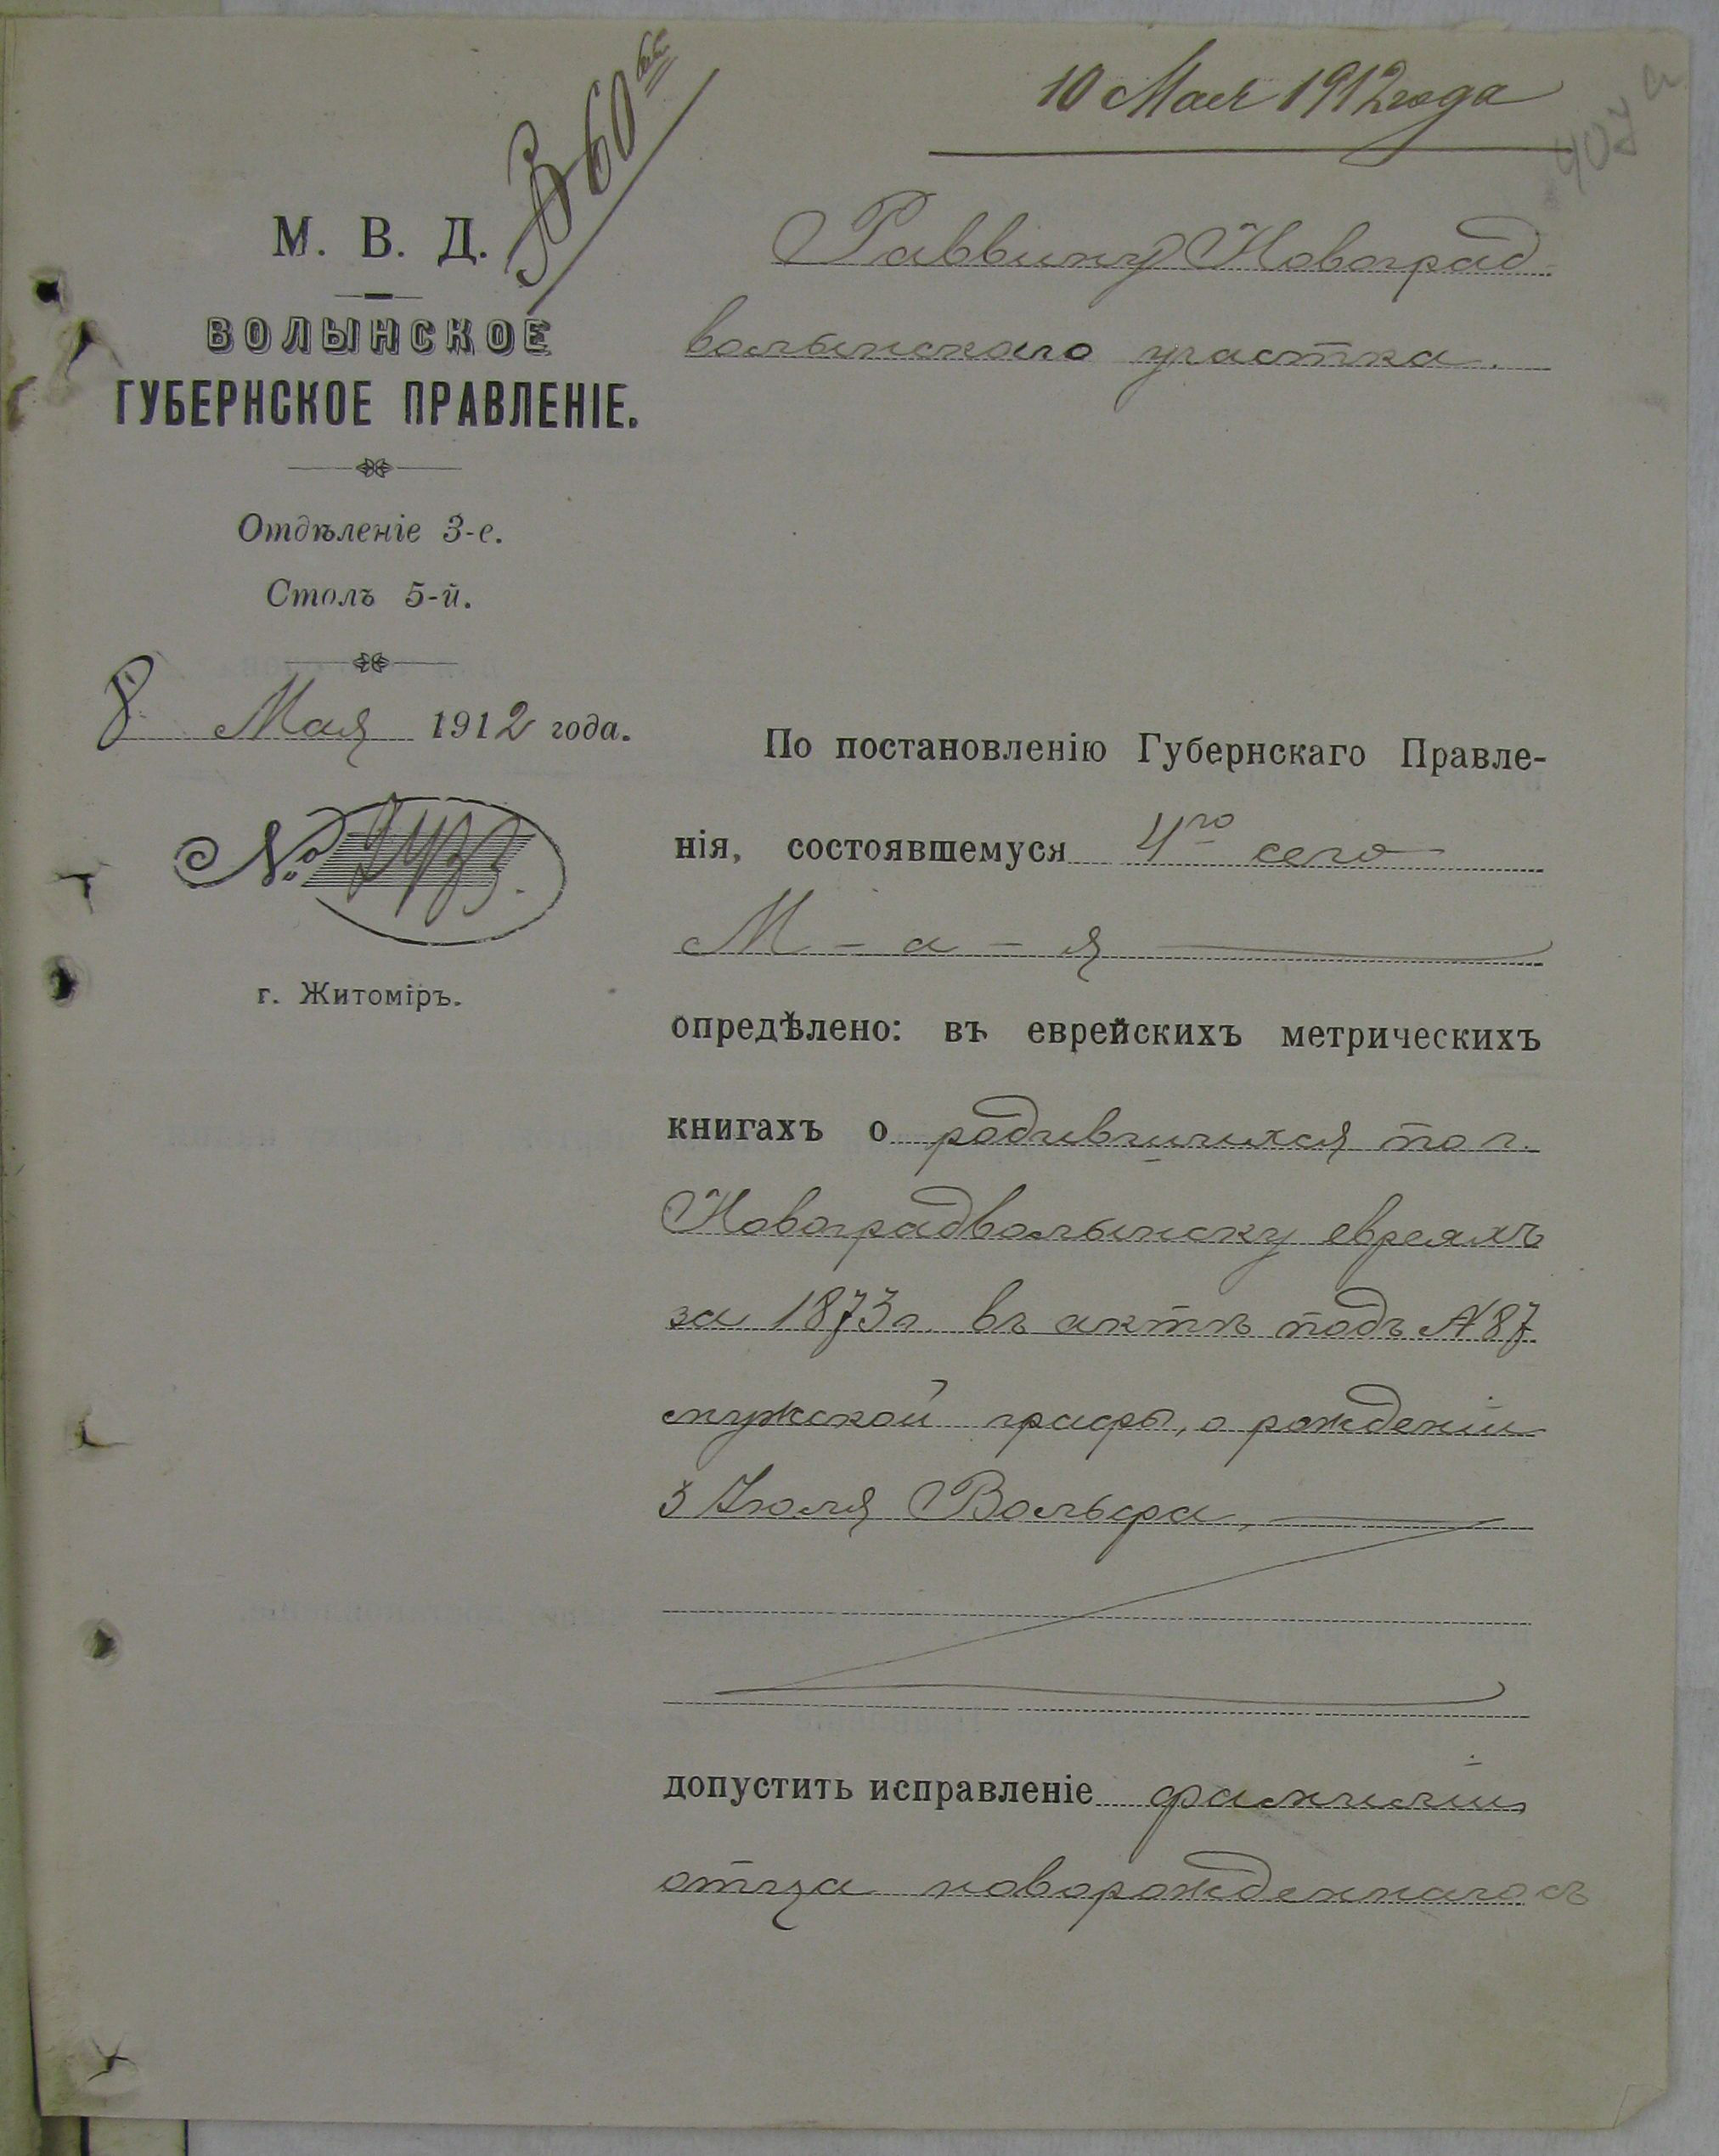 10 Мая 1912 года
М. В. Д.
ВОЛЫНСКОЕ
ГУБЕРНСКОЕ ПРАВЛЕНІЕ.
Отдѣленіе 3-е.
Столъ 5-й.
8 Мая 1912 года.
№
г. Житоміръ.
Раввину Новоград
волынскаго участка.
По постановленію Губернскаго Правле-
нія, состоявшемуся 4го сего
М - а - я
опредѣлено: въ еврейскихъ метрическихъ
книгахъ о родившихся по г.
Новоградволынску евреяхъ
за 1873 г. въ актѣ подъ № 87
мужской графы, о рожденіи
3 Іюля Вольфа,
допустить исправленіе фамиліи
отца новорожденнаго съ